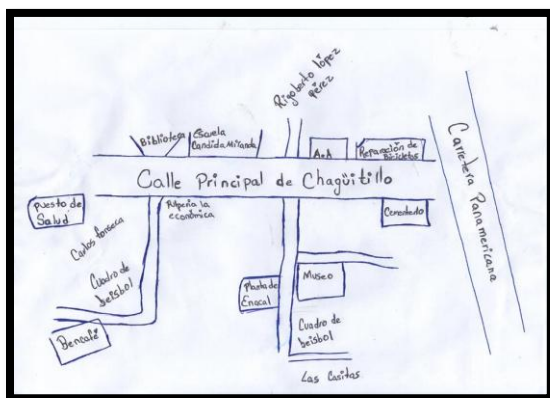 Rigoberto lópez
pérez
Biblioteca
Escuela
Candida Miranda
A.A
Reparación de
Bicicletas
Carretera Panamericana
Calle Principal de Chagüitillo
Puesto de
Salud
Carlos fonseca
Pulpería la
económica
Cementerio
Cuadro de
beisbol
Planta de
Enacal
Museo
Bencafé
Cuadro de
beisbol
Las Casitas